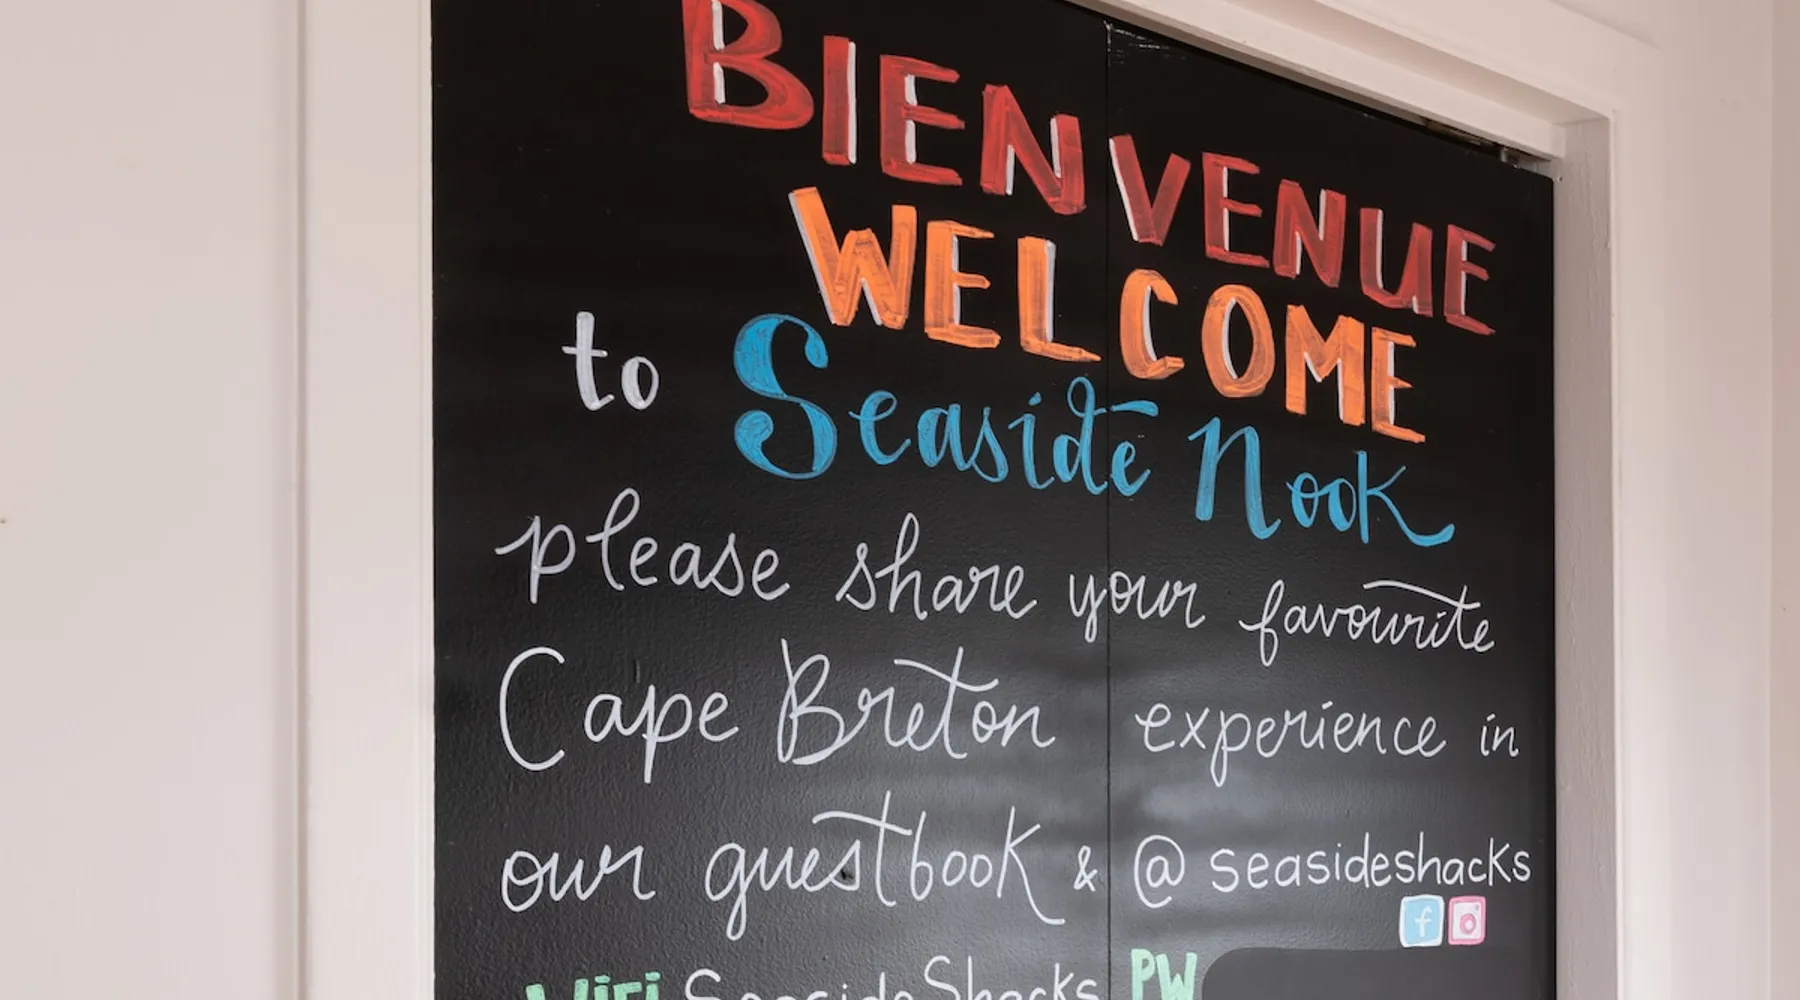 BIENVENUE
WELCOME
to Seaside Nook
please share your favourite
Cape Breton experience in
our guestbook & @seasideshacks
f
WiFi SeasideShacks PW